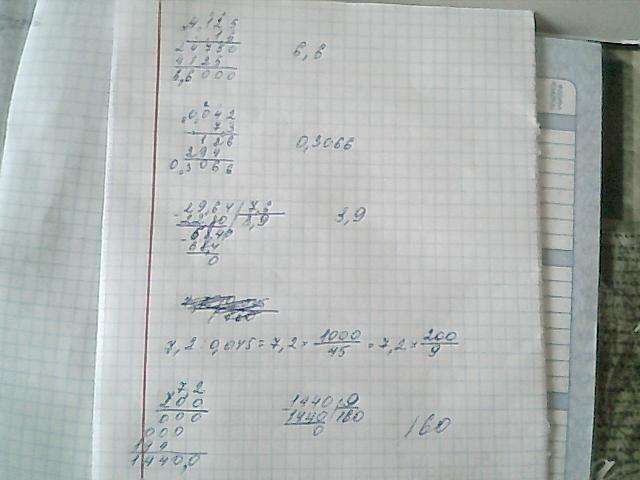 4,125
1,6
24750
4125
6,6000
6,6
0,042
7,3
126
294
0,3066
0,3066
29,64 7,6
22,80 3,9
6,84
6,84
0
3,9
7,2 : 0,045 = 7,2 × 1000/45 = 7,2 × 200/9
7,2
200
000
000
144
1440,0
1440 9
1440 160
0
160